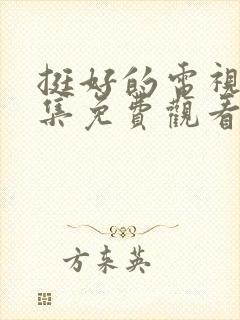 挺好的電視
集免費觀看
方東英